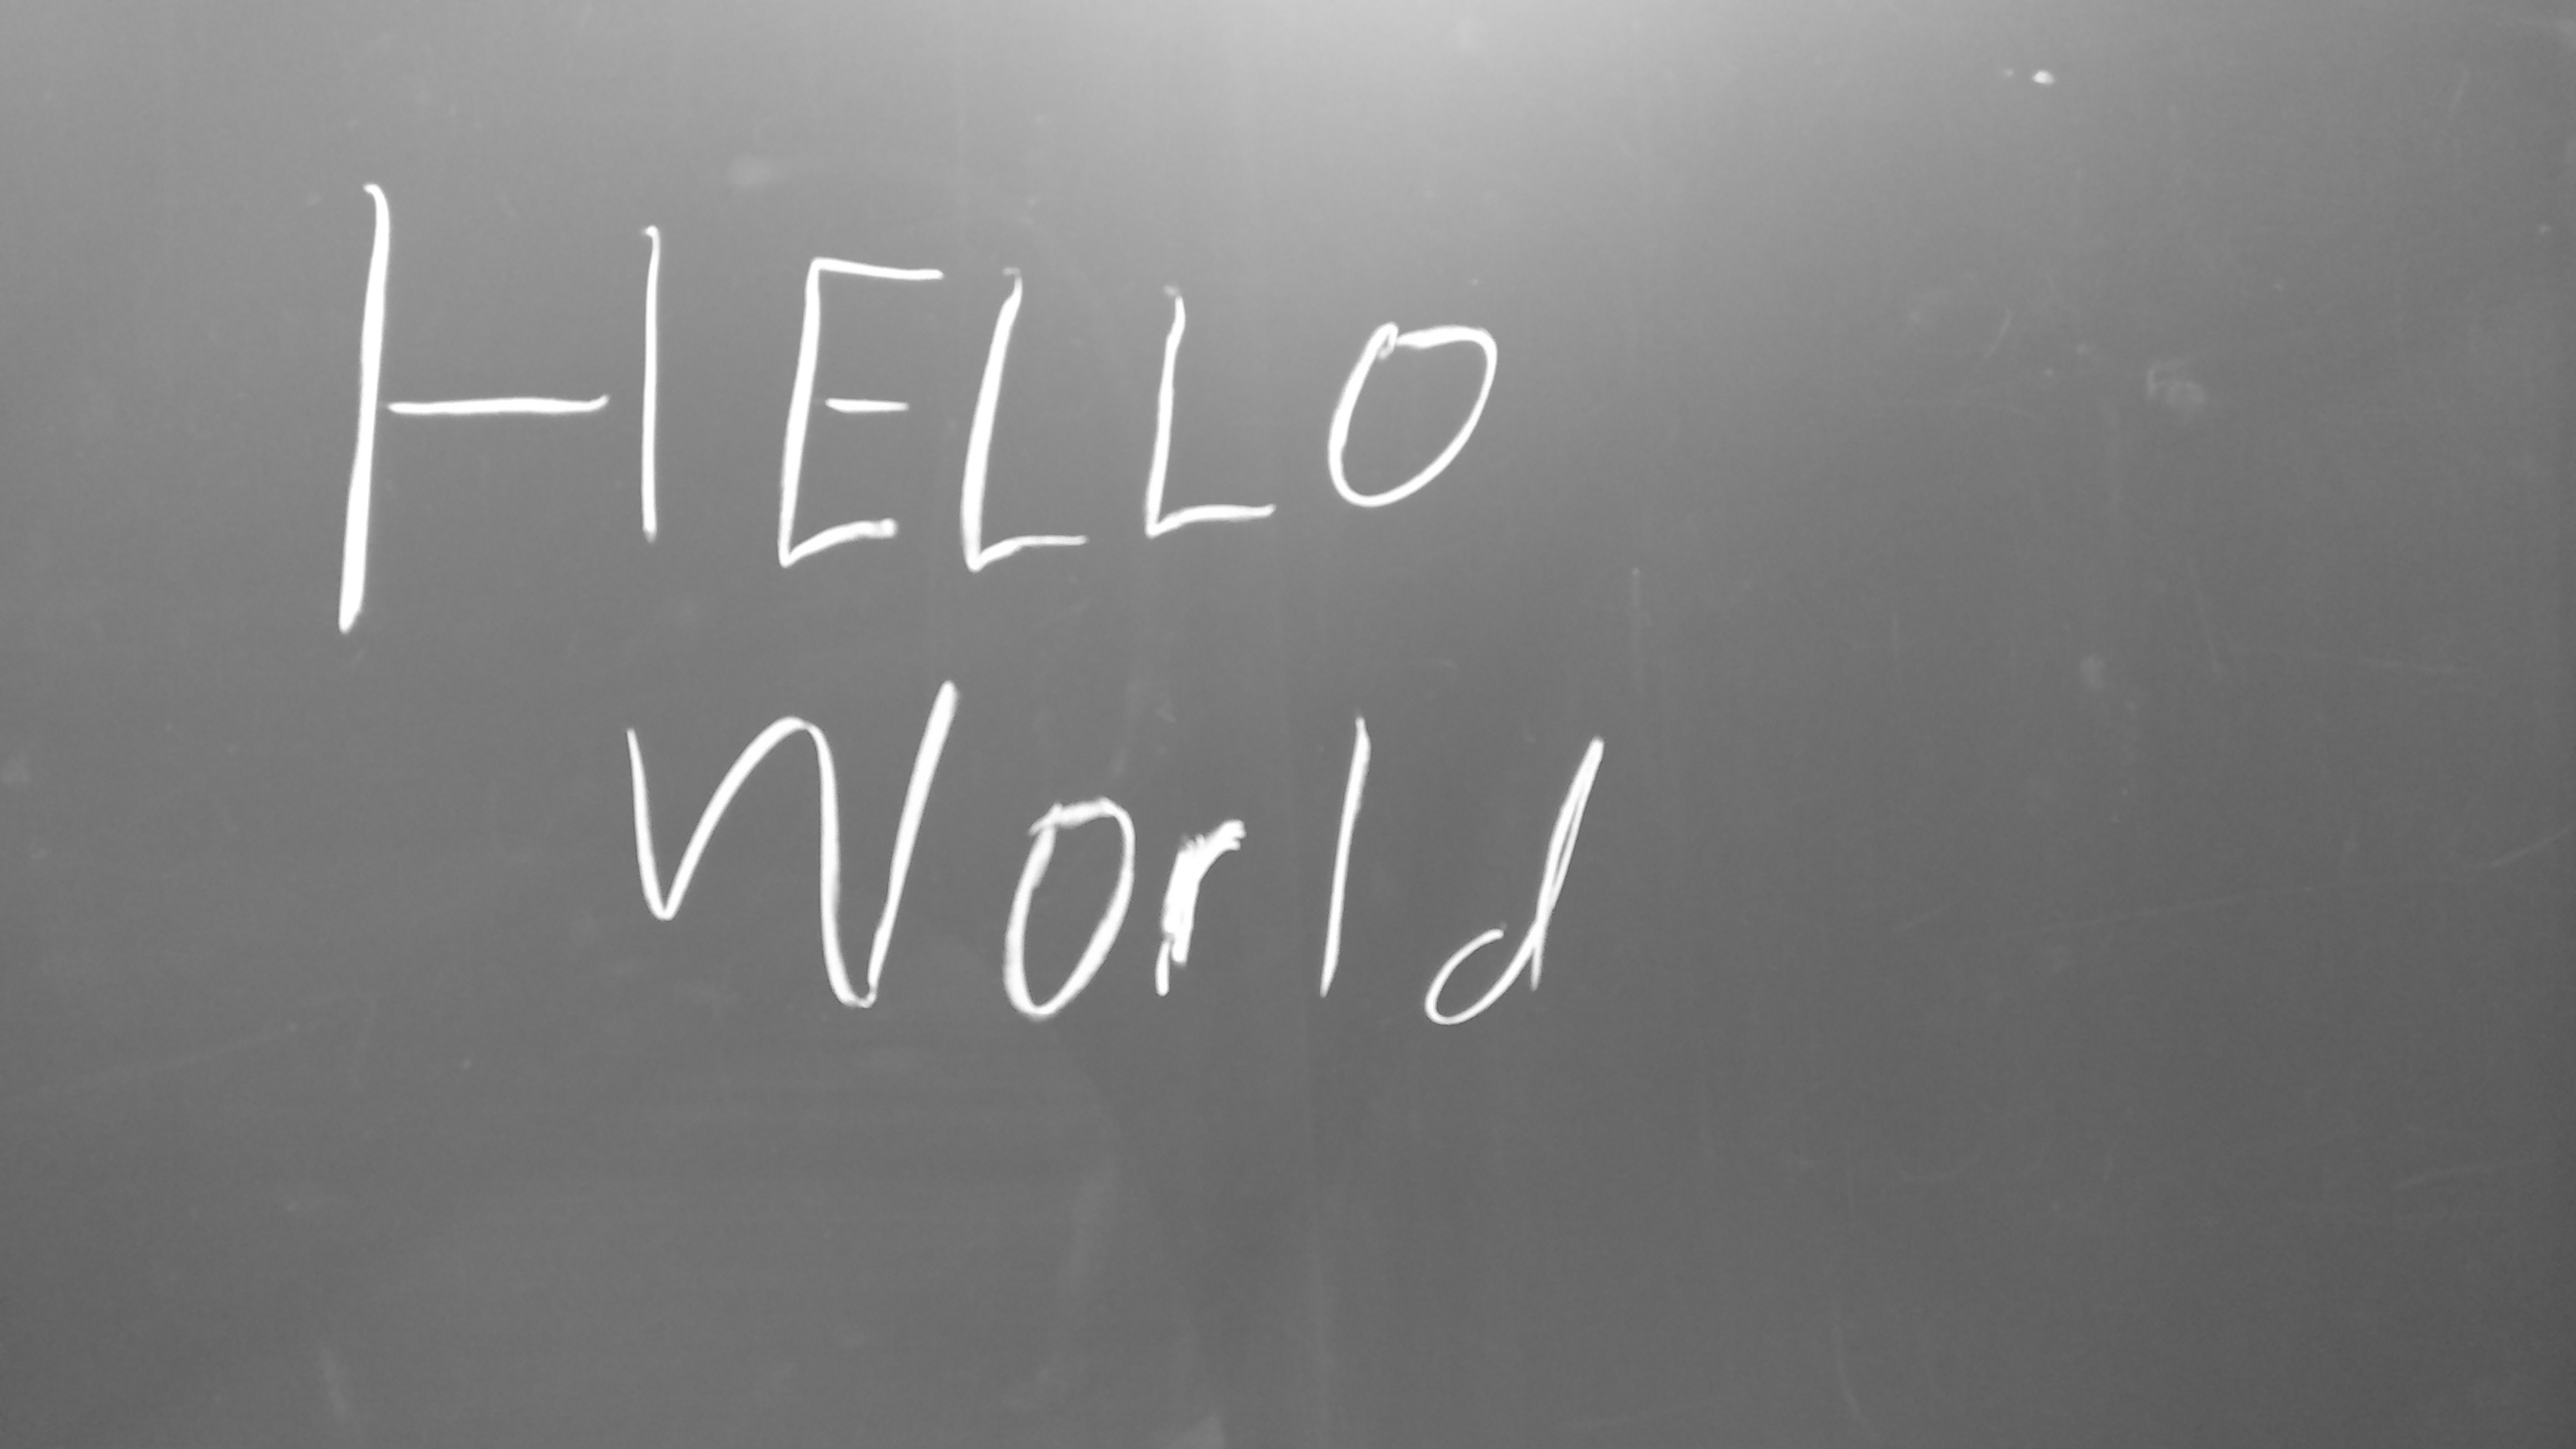 HELLO
World